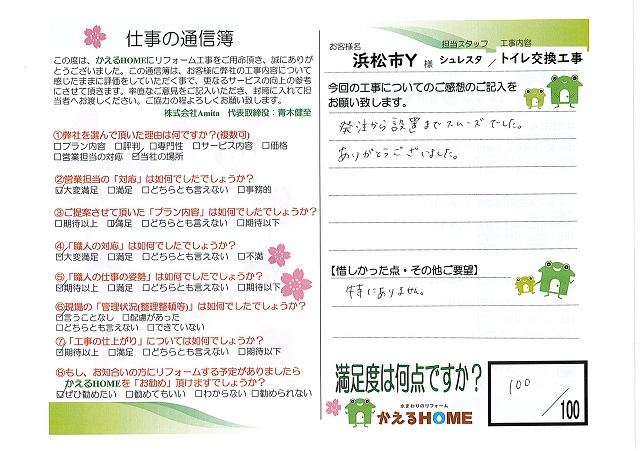 仕事の通信簿
この度は、かえるHOMEにリフォーム工事をご用命頂き、誠にありが
とうございました。この通信簿は、お客様に弊社の工事内容について
感じたままに評価をしていただく事で、更なるサービスの向上の参考
にさせて頂きます。率直なご意見をご記入いただき、封筒に入れて担
当者へお渡しください。ご協力の程よろしくお願い致します。
株式会社Amita 代表取締役：青木健至
①弊社を選んで頂いた理由は何ですか？(複数可)
□プラン内容 □評判 □専門性 □サービス内容 □価格
□営業担当の対応 ☑当社の場所
②営業担当の「対応」は如何でしたでしょうか？
☑大変満足 □満足 □どちらとも言えない □事務的
③ご提案させて頂いた「プラン内容」は如何でしたでしょうか？
□期待以上 ☑満足 □どちらとも言えない □期待以下
④「職人の対応」は如何でしたでしょうか？
☑大変満足 □満足 □どちらとも言えない □不満
⑤「職人の仕事の姿勢」は如何でしたでしょうか？
☑期待以上 □満足 □どちらとも言えない □期待以下
⑥現場の「管理状況(整理整頓等)」は如何でしたでしょうか？
☑言うことなし □配慮があった
□どちらとも言えない □できていない
⑦「工事の仕上がり」については如何でしょうか？
☑期待以上 □満足 □どちらとも言えない □期待以下
⑧もし、お知合いの方にリフォームする予定がありましたら
かえるHOMEを「お勧め」頂けますでしょうか？
☑ぜひ勧めたい □勧めてもいい □わからない □勧められない
お客様名 担当スタッフ 工事内容
浜松市Y 様 シュレスタ / トイレ交換工事
今回の工事についてのご感想のご記入を
お願い致します。
発注から設置までスムーズでした。
ありがとうございました。
【惜しかった点・その他ご要望】
特にありません。
満足度は何点ですか？
100/100
水まわりのリフォーム
かえるHOME